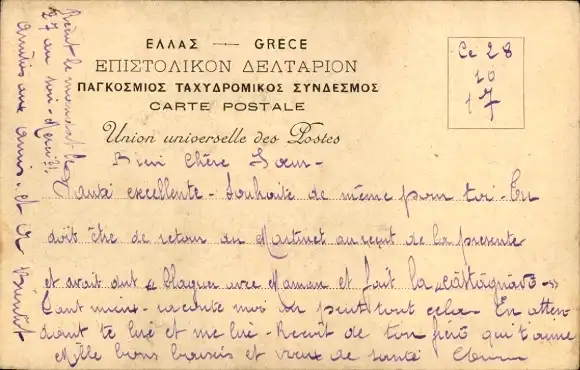 ΕΛΛΑΣ — GRÈCE
ΕΠΙΣΤΟΛΙΚΟΝ ΔΕΛΤΑΡΙΟΝ
ΠΑΓΚΟΣΜΙΟΣ ΤΑΧΥΔΡΟΜΙΚΟΣ ΣΥΝΔΕΣΜΟΣ
CARTE POSTALE
Union universelle des Postes
Ce 28
10
17
Bien Chère Sœur -
Santé excellente - Souhaite de même pour toi - En
doit être de retour au Martinet au reçut de la présente
et avait dut « blaguer avec Maman et fait la
Tant mieux - raconte moi un peut tout cela - En atten
dant te lire et me lire - Recoit de ton qui t'aime
Mille bons baisers et vœux de santé
Reçut le mandat le
27 au soir - Merci
Amitiés aux amis - et à
Bientôt